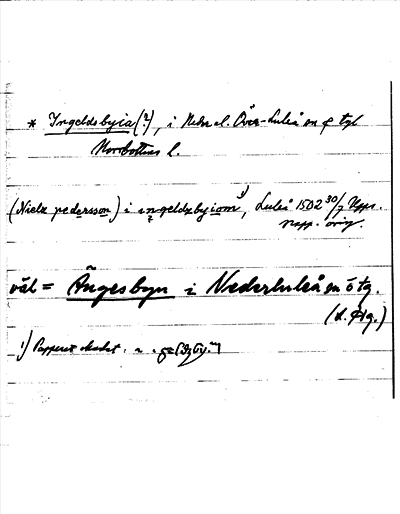 * Ingeldsbyia (?), i Neder el. Över-Luleå sn o tgl
Norrbottens l.
(Nielx pedersson) i ingeldzbyiom ¹), Luleå 1502 30/7 Upps.
papp. orig.
väl = Ängesbyn i Nederluleå sn ö tg.
¹) Papperet skadat.